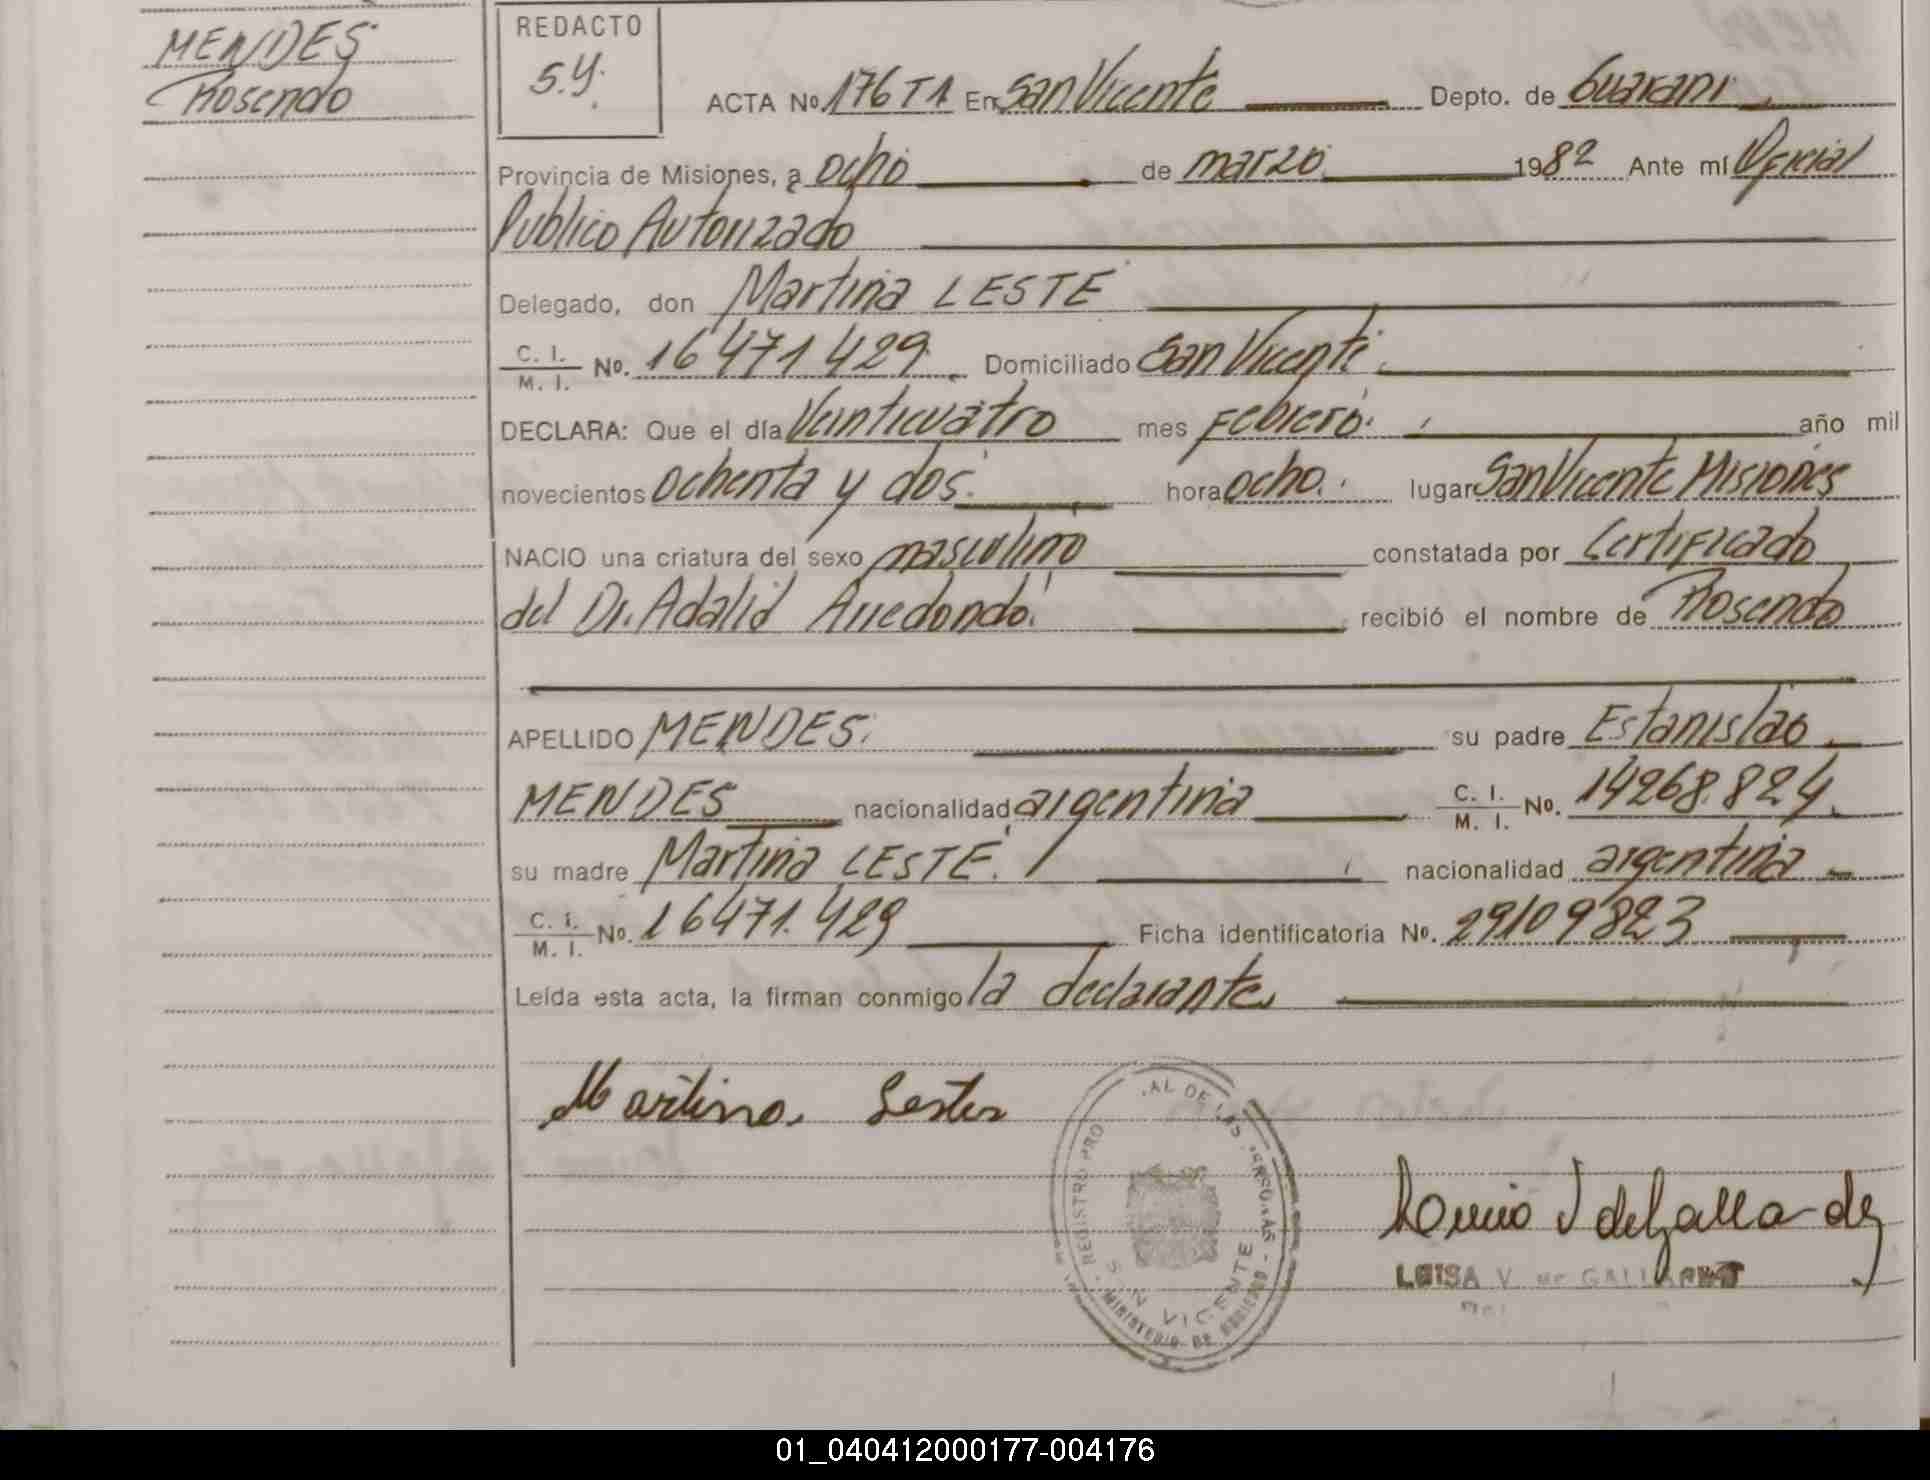 MENDES
Rosendo
REDACTO
S.Y.
ACTA No. 176 T1 En San Vicente Depto. de Guarani
Provincia de Misiones, a ocho de marzo 1982 Ante mí Oficial
Publico Autorizado
Delegado, don Martina LESTE
C. I. / M. I. No. 16471429 Domiciliado San Vicente
DECLARA: Que el día Veinticuatro mes Febrero año mil
novecientos ochenta y dos hora ocho lugar San Vicente Misiones
NACIO una criatura del sexo masculino constatada por Certificado
del Dr. Adalid Arredondo recibió el nombre de Rosendo
APELLIDO MENDES su padre Estanislao
MENDES nacionalidad argentina C. I. / M. I. No. 14268.824
su madre Martina LESTE nacionalidad argentina
C. I. / M. I. No. 16471.429 Ficha identificatoria No. 29109823
Leída esta acta, la firman conmigo la declarante
Martina
REGISTRO AL DE LAS PERSONAS
SAN VICENTE
MINISTERIO DE GOBIERNO
LUISA V. de
01_040412000177-004176